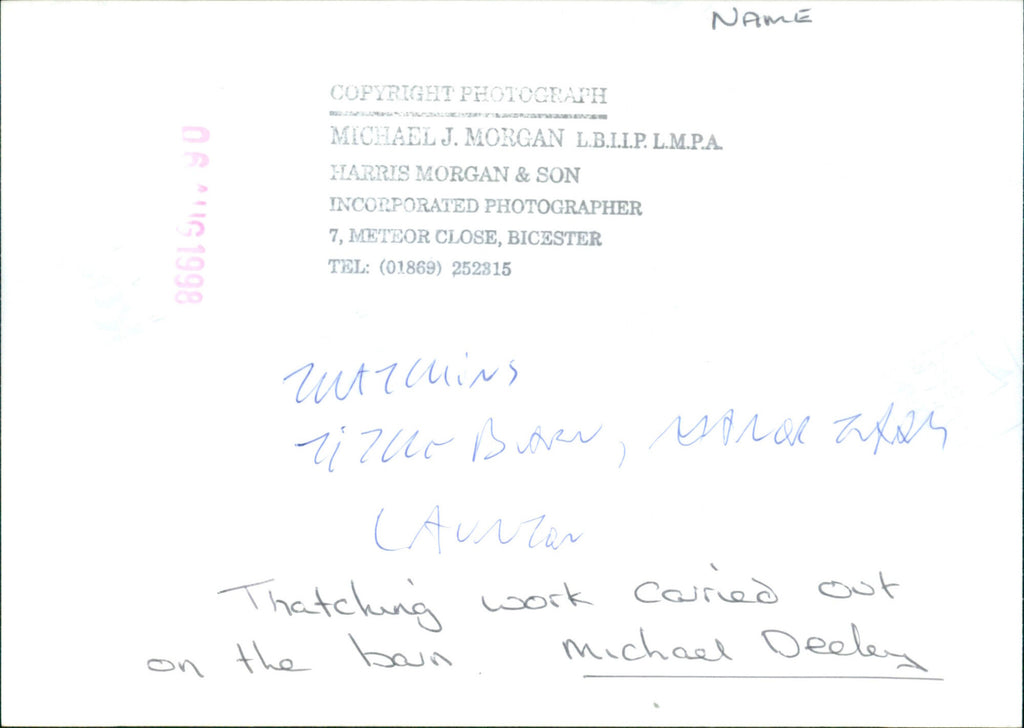 NAME
COPYRIGHT PHOTOGRAPH
MICHAEL J. MORGAN L.B.I.I.P. L.M.P.A.
HARRIS MORGAN & SON
INCORPORATED PHOTOGRAPHER
7, METEOR CLOSE, BICESTER
TEL: (01869) 252315
06 AUG 1998
THATCHING
TITHE BARN, MANOR FARM
LAUNTON
Thatching work carried out
on the barn. Michael Deeley